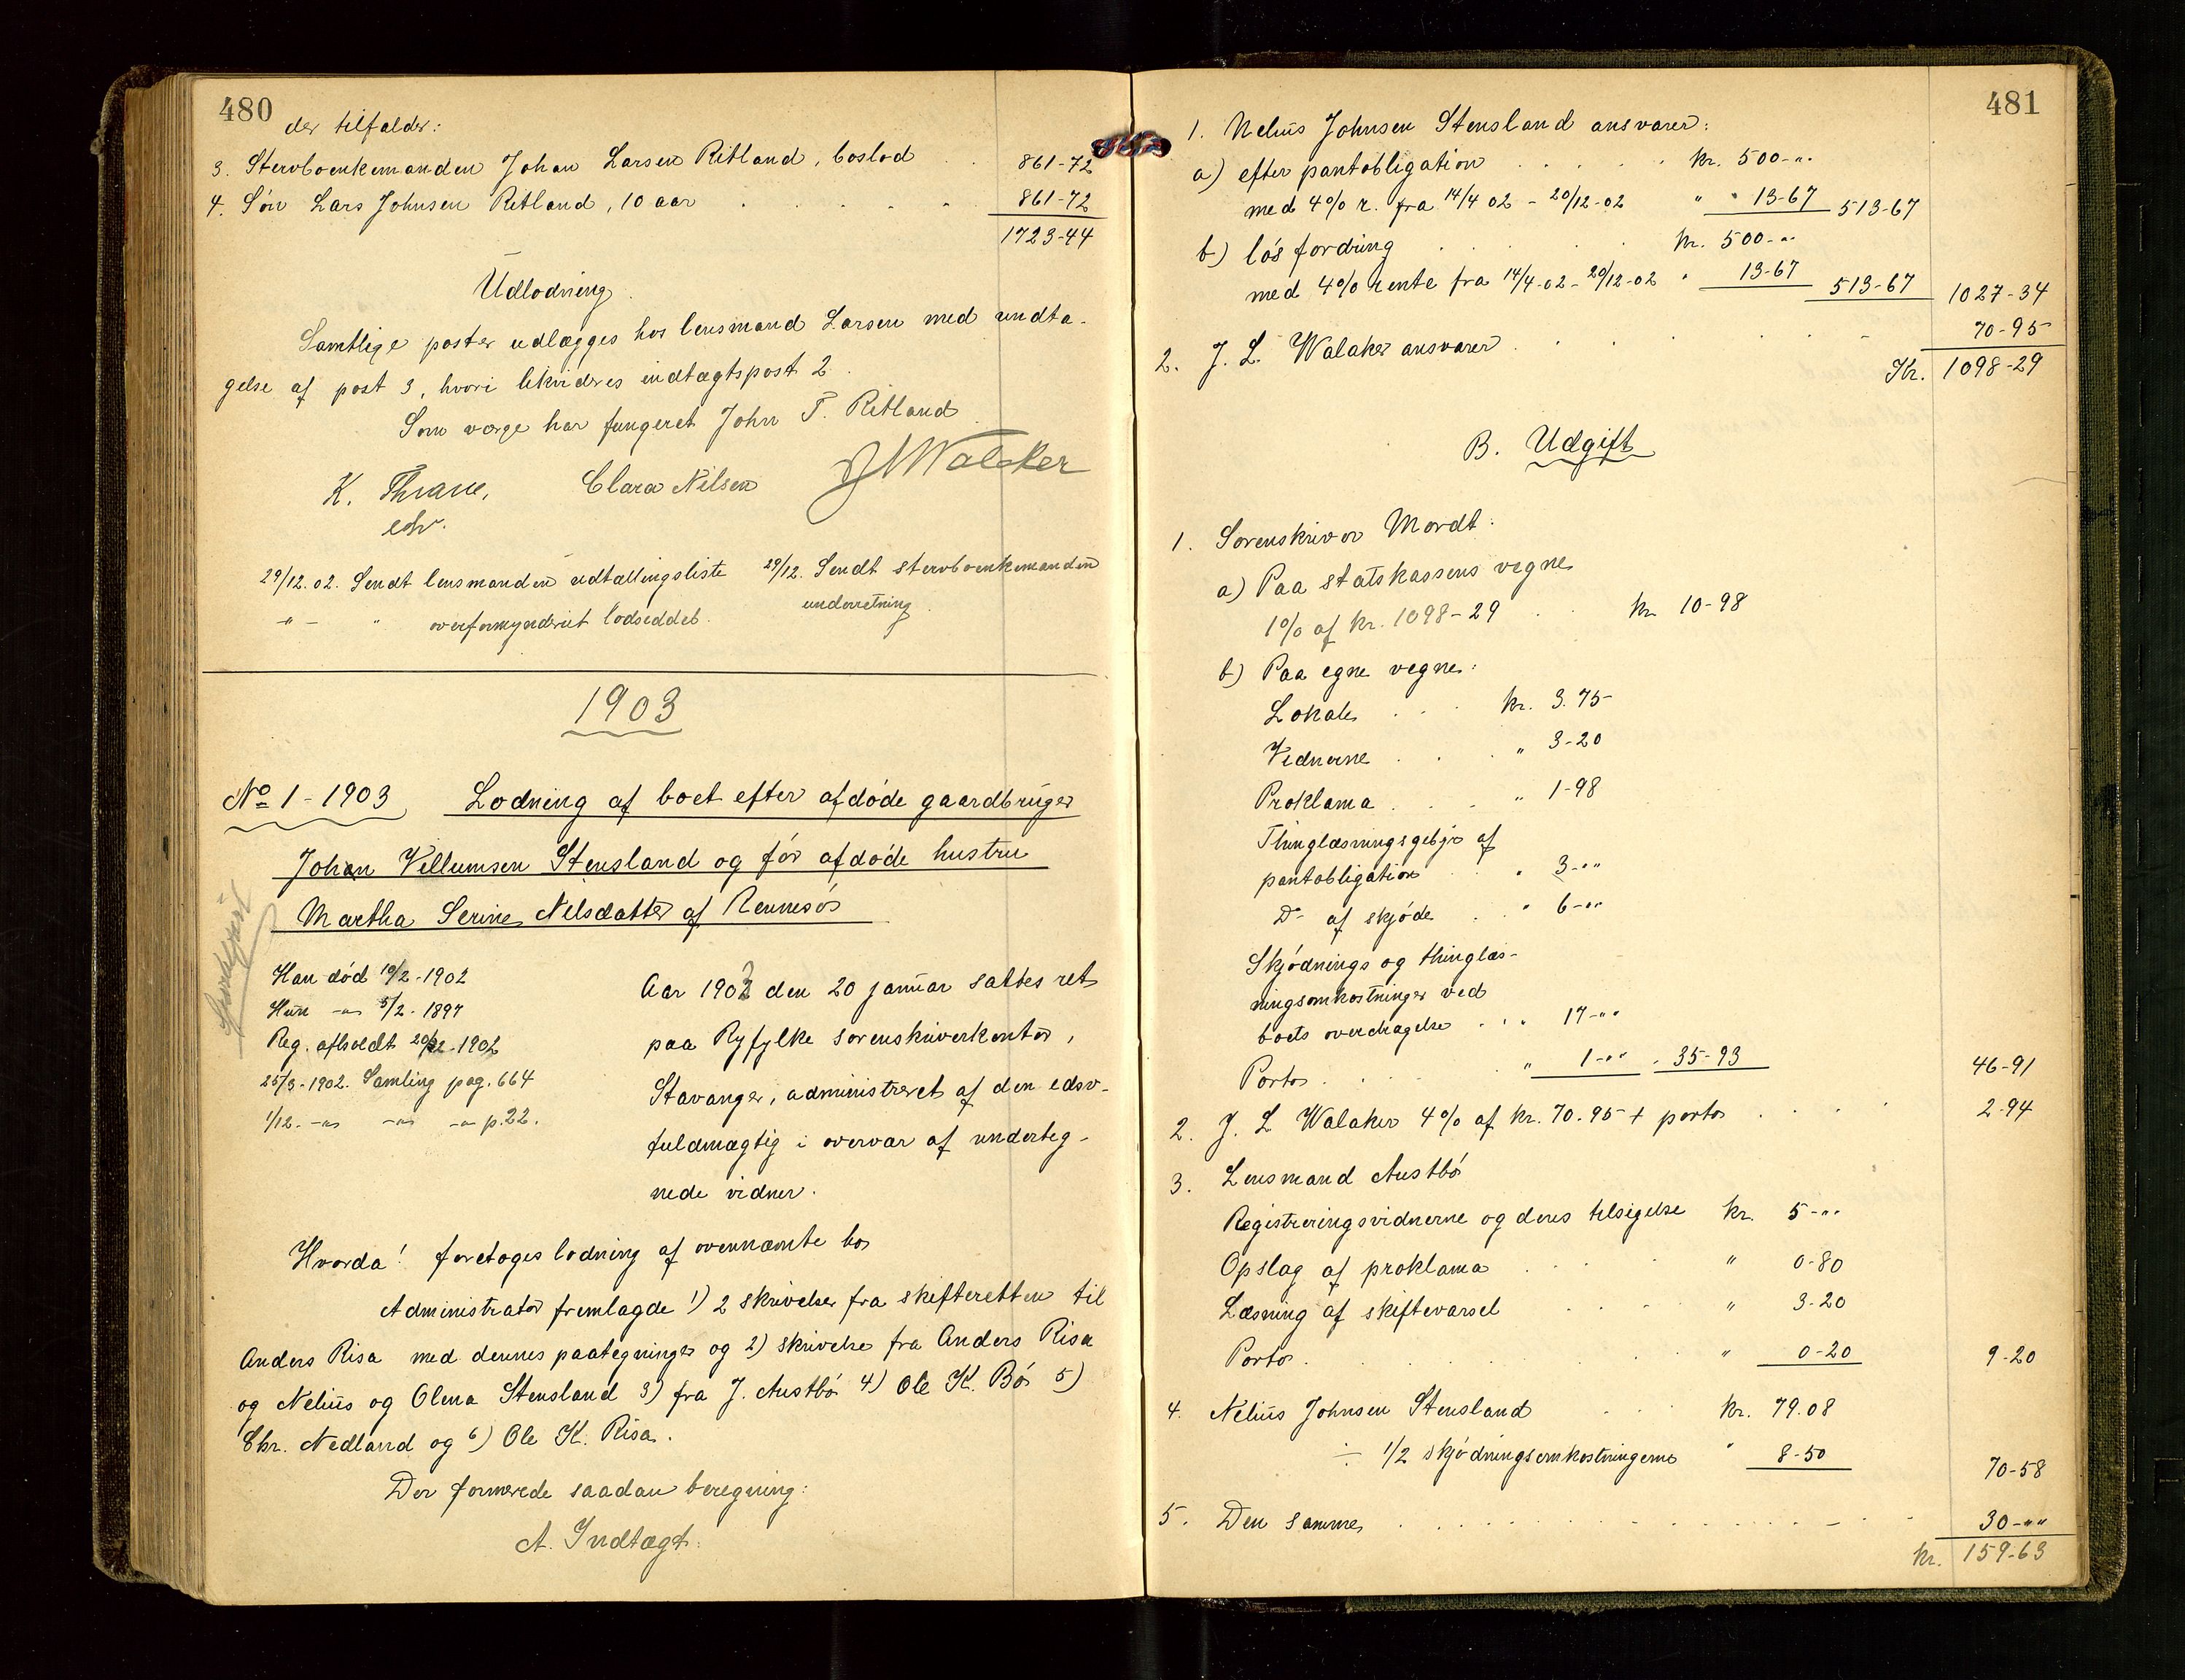 480
der tilfalder:
3. Stervboenkemanden Johan Larsen Ritland, boslod . . 861-72
4. Søn Lars Johnsen Ritland, 10 aar . . . . . 861-72
1723-44
Udlodning.
Samtlige poster udlægges hos lensmand Larsen med undta-
gelse af post 3, hvori likvideres indtægtspost 2.
Som værge har fungeret John T. Ritland
K. Thrane, Clara Nilsen J L Walaker
edv.
29/12.02. Sendt lensmanden udtællingsliste 29/12. Sendt stervboenkemanden
-"- " overformynderiet lodseddel. underretning.
1903
No 1-1903 Lodning af boet efter afdøde gaardbruger
Johan Villumsen Stensland og før afdøde hustru
Martha Serine Nilsdatter af Rennesøs
Han død 10/2-1902
Hun -"- 5/2-1897
Reg. afholdt 20/2-1902
25/3-1902. Samling pag. 664
1/12. -"- -"- -"- p. 22.
Aar 1903 den 20 januar sattes ret
paa Ryfylke sorenskriverkontor,
Stavanger, administreret af den edsv-
fuldmægtig i overvær af underteg-
nede vidner.
Hvorda! foretoges lodning af ovennæmte bo
Administrator fremlagde 1) 2 skrivelser fra skifteretten til
Anders Risa med dennes paategninger og 2) skrivelse fra Anders Risa
og Nelius og Olena Stensland 3) fra J. Austbø 4) Ole K. Bø 5)
Chr. Nedland og 6) Ole K. Risa.
Der formerede saadan beregning:
A. Indtægt:
481
1. Nelius Johnsen Stensland ansvarer:
a) efter pantobligation . . . . . kr. 500-"
med 4% r. fra 14/4 02 - 20/12-02 " " 13-67 513-67
b) løs fordring . . . . . kr. 500-"
med 4% rente fra 14/4-02-20/12-02 " 13-67 513-67 1027-34
2. J. L. Walaker ansvarer . . . . . 70-95
Kr. 1098-29
B. Udgift
1. Sorenskriver Mordt:
a) Paa statskassens vegne
1% af kr. 1098-29 . . kr 10-98
b) Paa egne vegne:
Lokale . . . kr. 3.75
Vidnerne . . . " 3-20
Proklama . . . " 1-98
Thinglæsningsgebyr af
pantobligation . . " 3-"
Do af skjøde . . " 6-"
Skjødnings og thinglæs-
ningsomkostninger ved
boets overdragelse . . . 17-"
Porto . . . . " 1-" " 35-93 46-91
2. J. L Walaker 4% af kr. 70.95 + porto . . . . 2-94
3. Lensmand Austbø
Registreringsvidnerne og deres tilsigelse kr. 5-"
Opslag af proklama . . . . " 0-80
Læsning af skiftevarsel . . . . " 3-20
Porto . . . . . . " 0-20 9-20
4. Nelius Johnsen Stensland . . . kr. 79.08
÷ 1/2 skjødningsomkostningerne " 8-50 70-58
5. Den samme . . . . . . . . 30-"
kr. 159-63